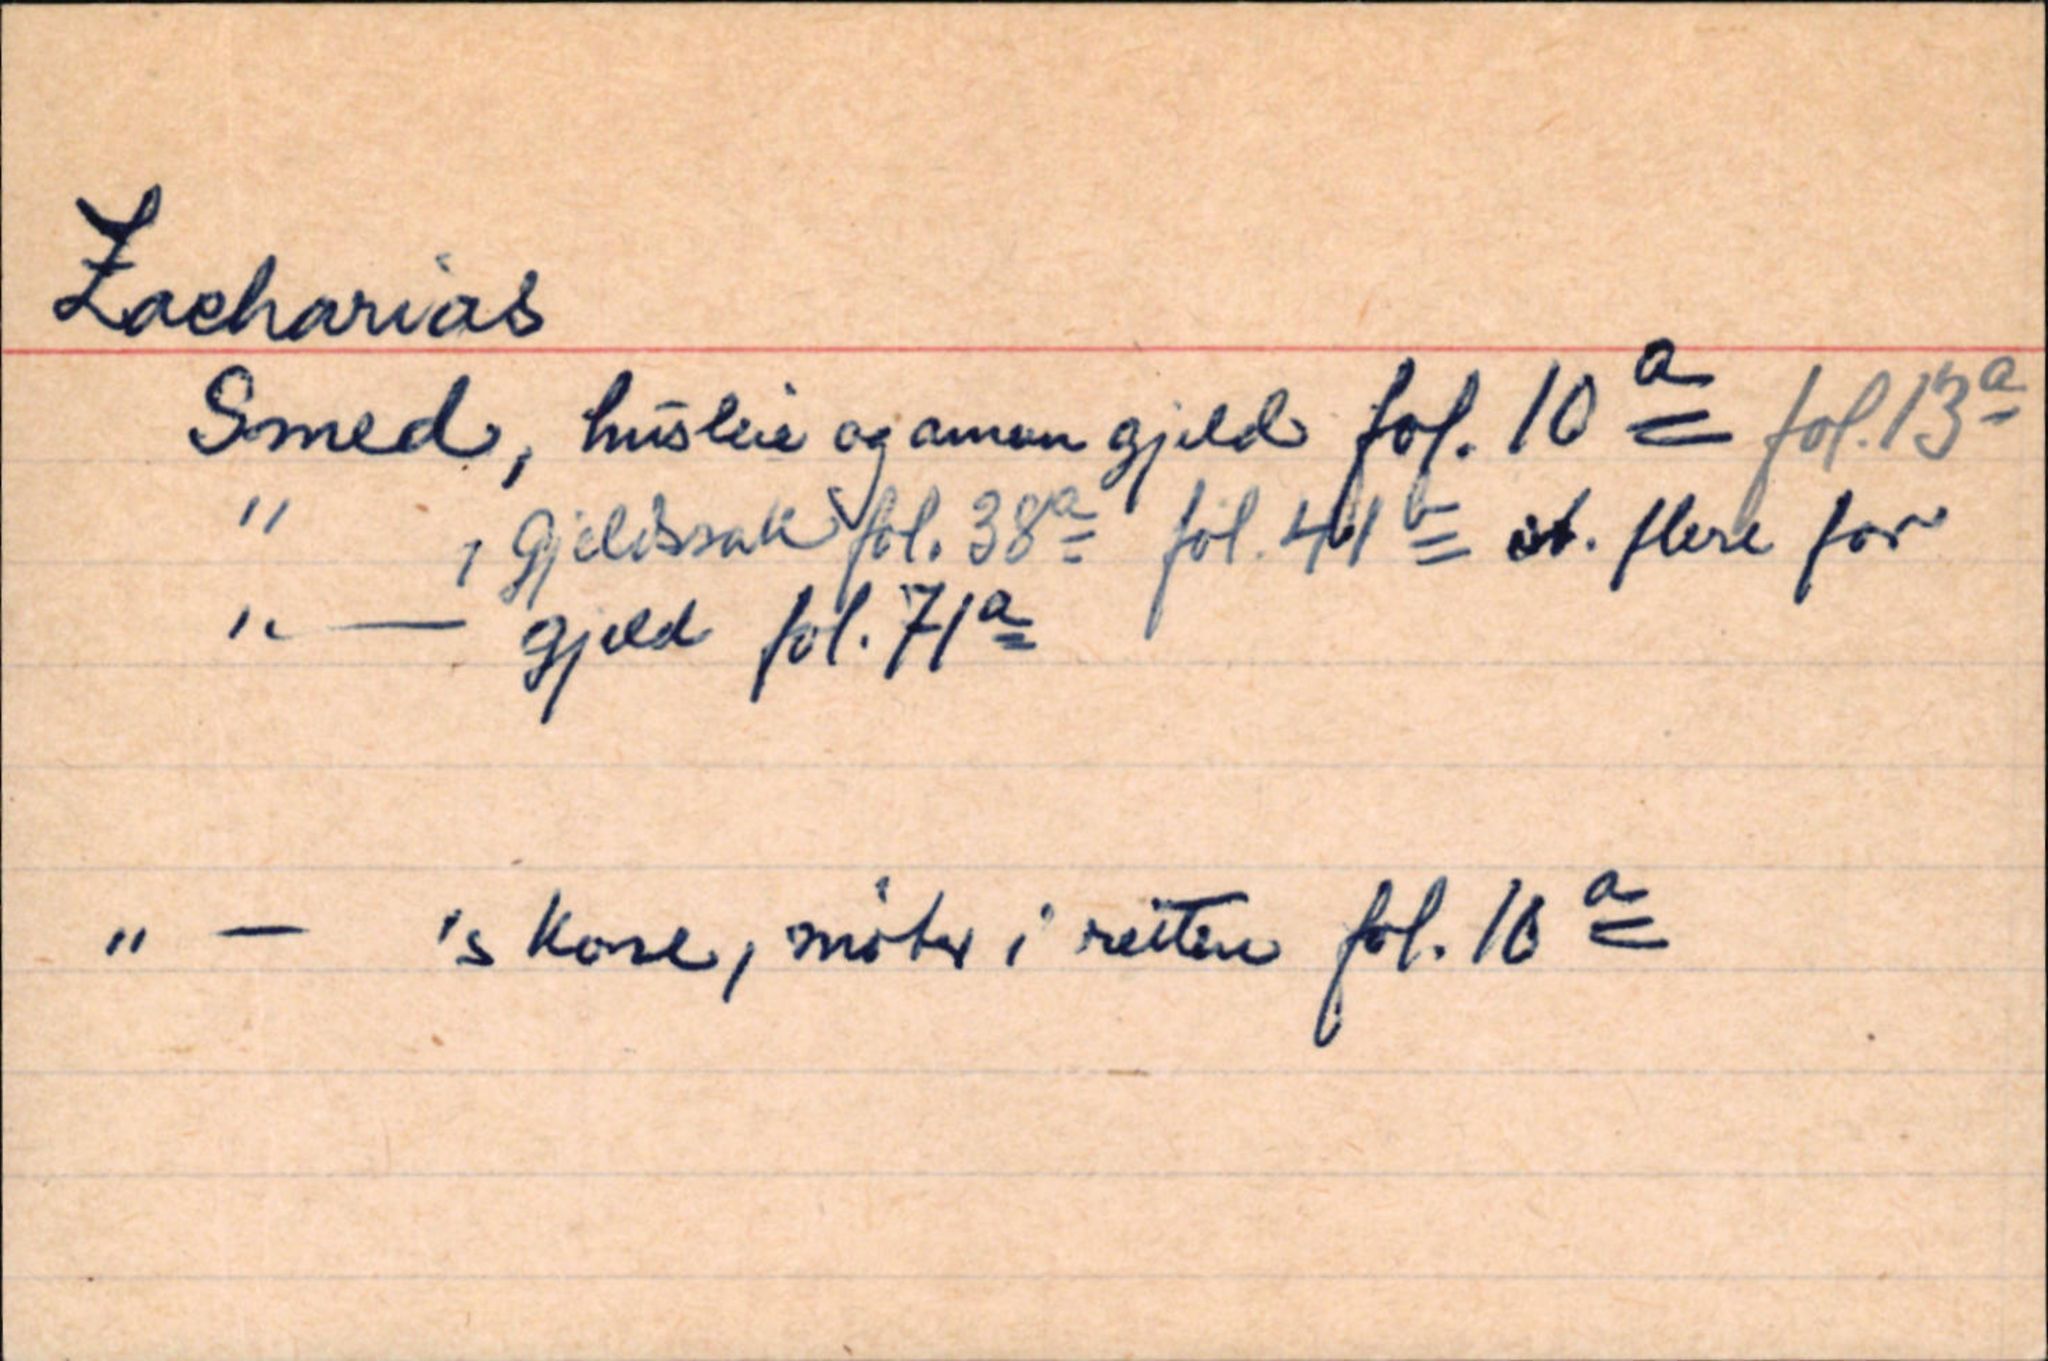 Zacharias
Smed, husleie og annen gjeld fol. 10a fol. 13a
" , gjeldssak fol. 38a fol. 41b st. flere for
" — gjeld fol. 71a
" — 's kone, møter i retten fol. 10a